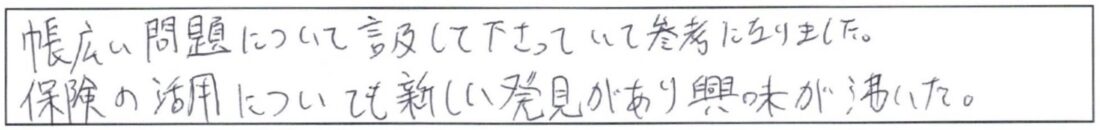 帳広い問題について言及して下さっていて参考になりました。
保険の活用についても新しい発見があり興味が沸いた。